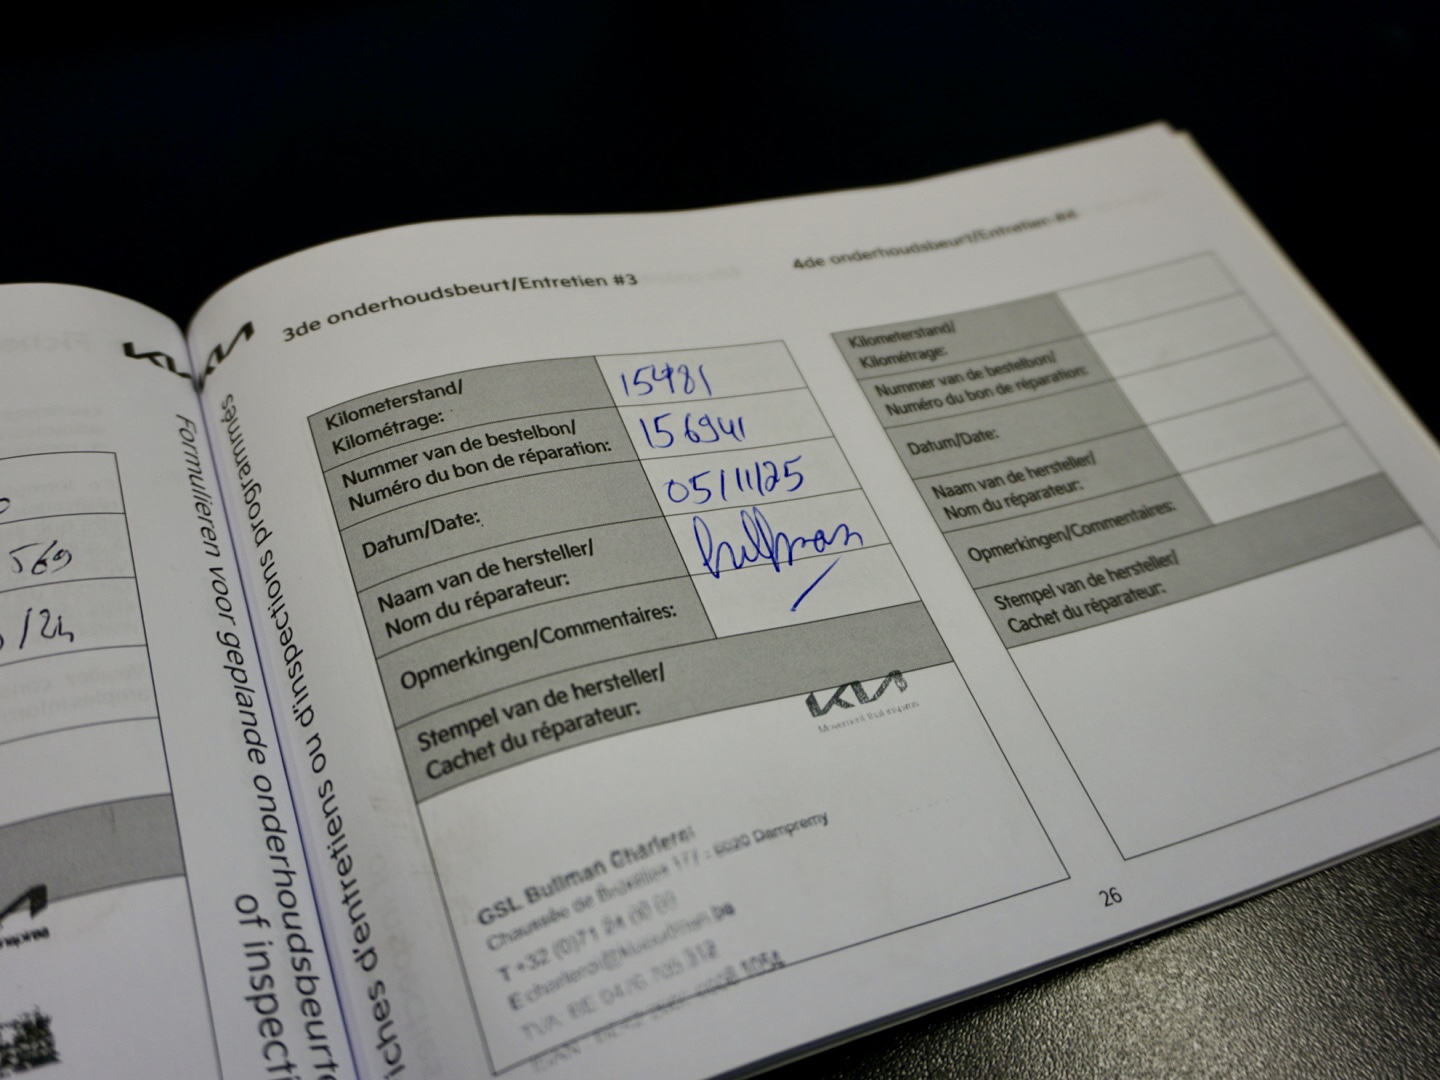 569
/24
Formulieren voor geplande onderhoudsbeurte
of inspecti
iches d'entretiens ou d'inspections programmés
KIA
3de onderhoudsbeurt/Entretien #3
Kilometerstand/
Kilométrage:
15481
Nummer van de bestelbon/
Numéro du bon de réparation:
156941
Datum/Date:
05/11/25
Naam van de hersteller/
Nom du réparateur:
bullman
Opmerkingen/Commentaires:
/
Stempel van de hersteller/
Cachet du réparateur:
KIA
Movement that inspires
GSL Bullman Charleroi
Chaussée de Bruxelles 177 - 6020 Dampremy
T +32 (0)71
TVA BE 0476.705.312
4de onderhoudsbeurt/Entretien #4
Kilometerstand/
Kilométrage:
Nummer van de bestelbon/
Numéro du bon de réparation:
Datum/Date:
Naam van de hersteller/
Nom du réparateur:
Opmerkingen/Commentaires:
Stempel van de hersteller/
Cachet du réparateur:
26